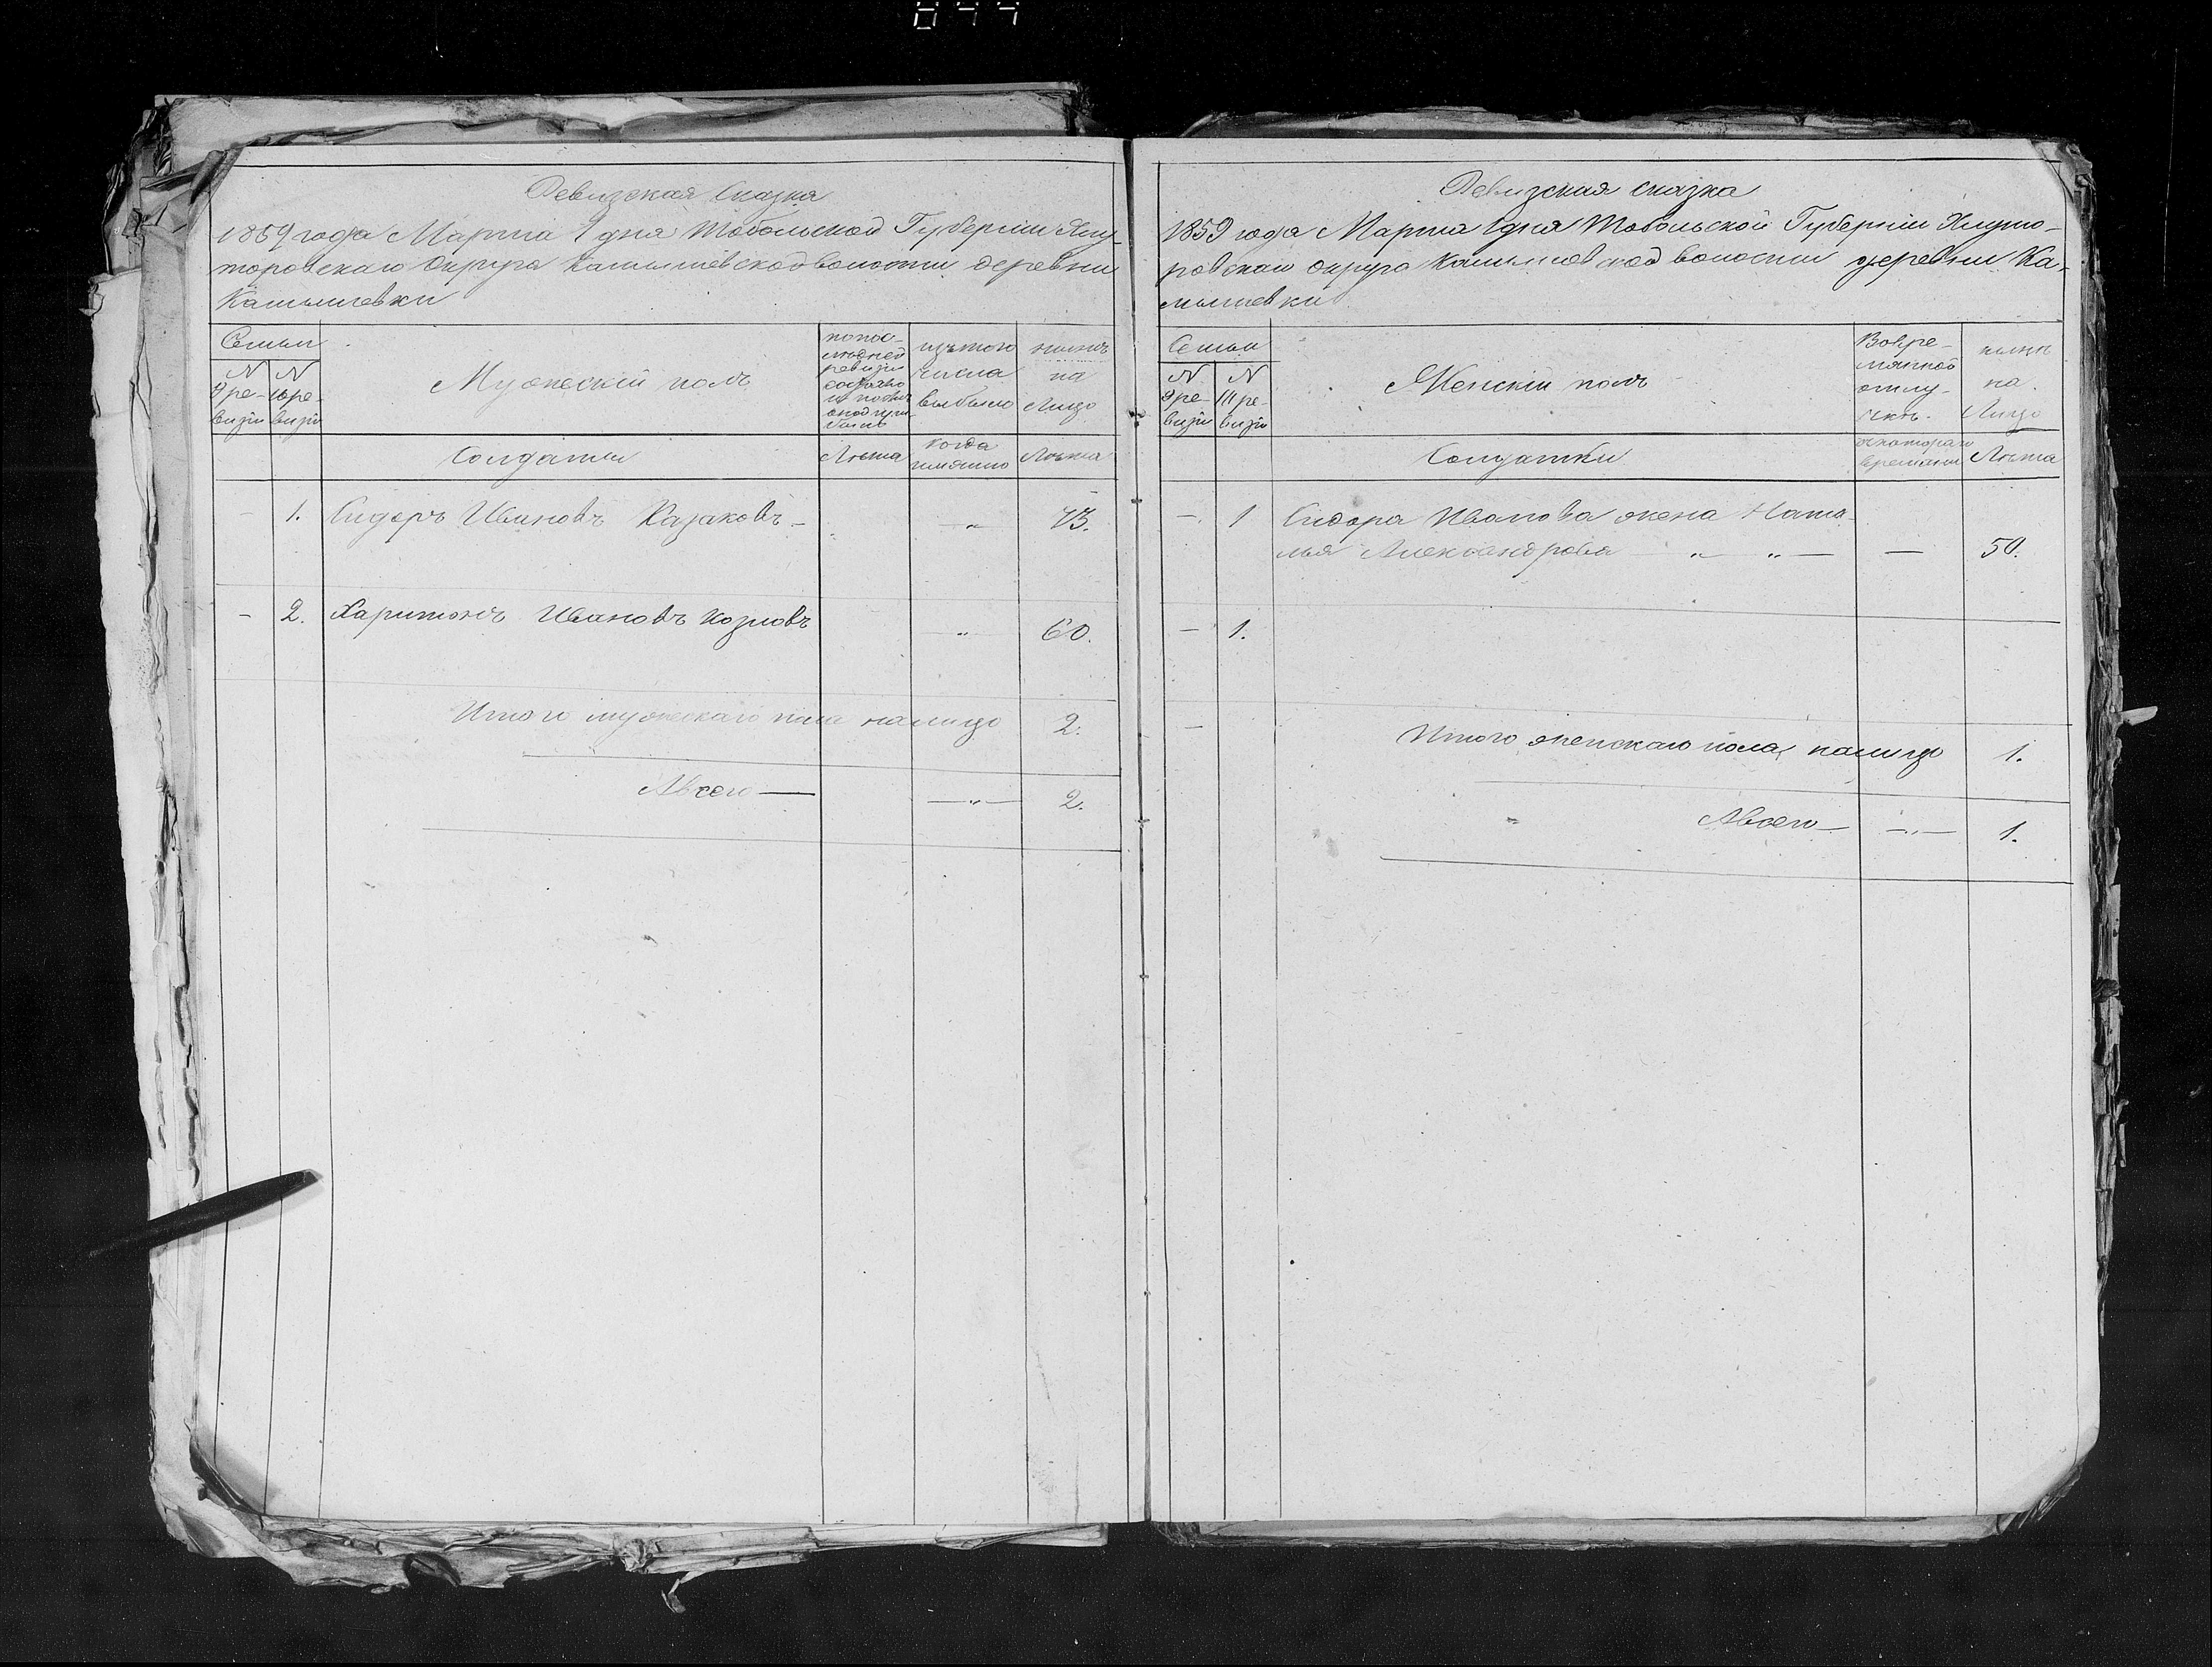 844
Ревизская Сказка
1859 года Марта 1 дня Тобольской Губернiи Ялу-
торовскаго Округа Камышевской волости деревни
Камышевки
Семьи
N
9 ре-
визiи
N
10 ре-
визiи
Мужескiй полъ
попос-
ледней
ревизiи
состояло
изътого
числа
выбыло
нынѣ
на
Лицо
Солдаты
Лѣта
когда
имянно
Лѣта
- 1. Сидоръ Ивановъ Казаковъ - 73.
- 2. Харитонъ Ивановъ Козловъ 60.
Итого мужескаго пола налицо 2.
Авсего 2.
Ревизская сказка
1859 года Марта 1 дня Тобольской Губернiи Ялуто-
ровскаго округа Камышевской волости деревни Ка-
мышевки
Семьи
N
9 ре-
визiи
N
10 ре-
визiи
Женскiй полъ
Вовре-
мянной
отлу-
чкѣ
нынѣ
на
Лицо
Солдатки
скотораго
времяни
Лѣта
- 1 Сидора Иванова жена Ната-
лья Александрова - 50.
- 1.
Итого женскаго пола налицо 1.
Авсего 1.